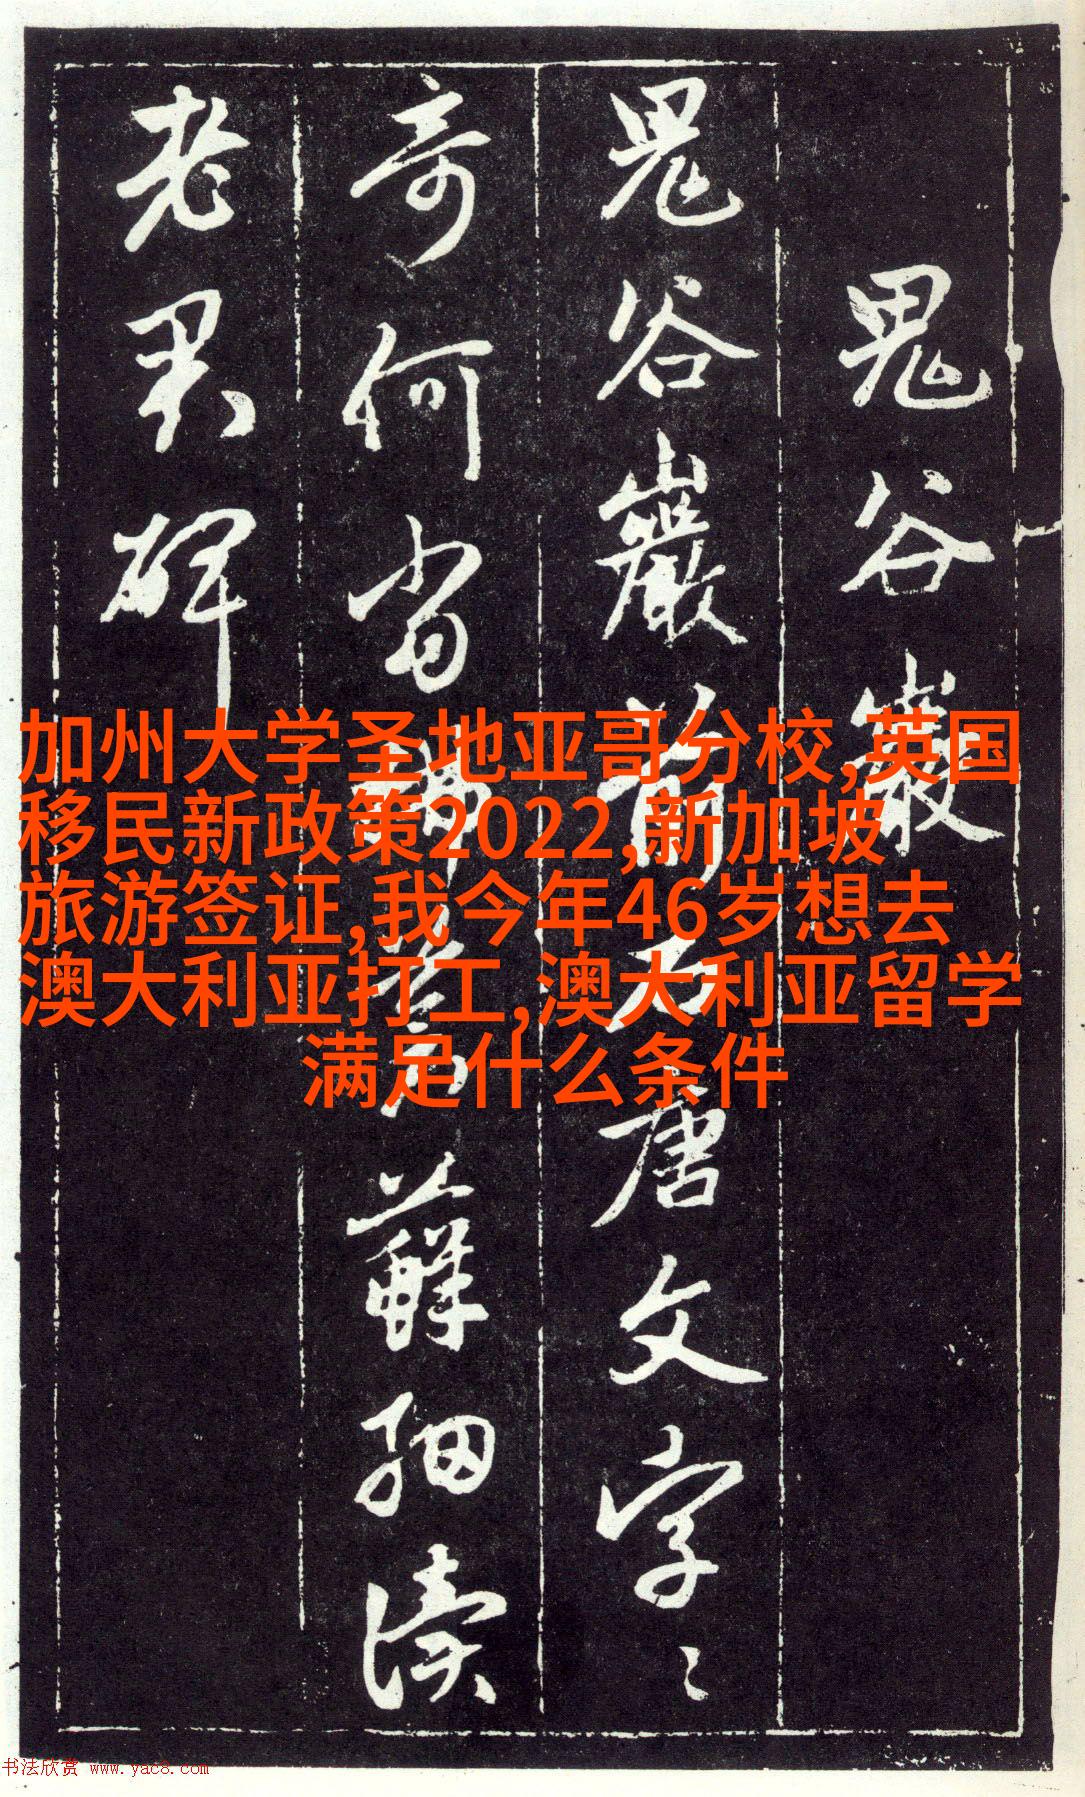 鬼谷巖
鬼谷巖前石唐文字〻
奇何當蘚細讀
老君碑
加州大学圣地亚哥分校,英国
移民新政策2022,新加坡
旅游签证,我今年46岁想去
澳大利亚打工,澳大利亚留学
满足什么条件
书法欣赏 www.yac8.com